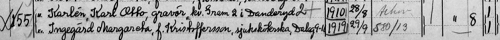 1/155 " Karlén, Karl Otto, gravör kv. Grem 2 i Danderyd 2 1910 28/8 " 8
" Ingegärd Margareta, f. Kristoffersson, sjuksköterska, 1919 29/9 580/13